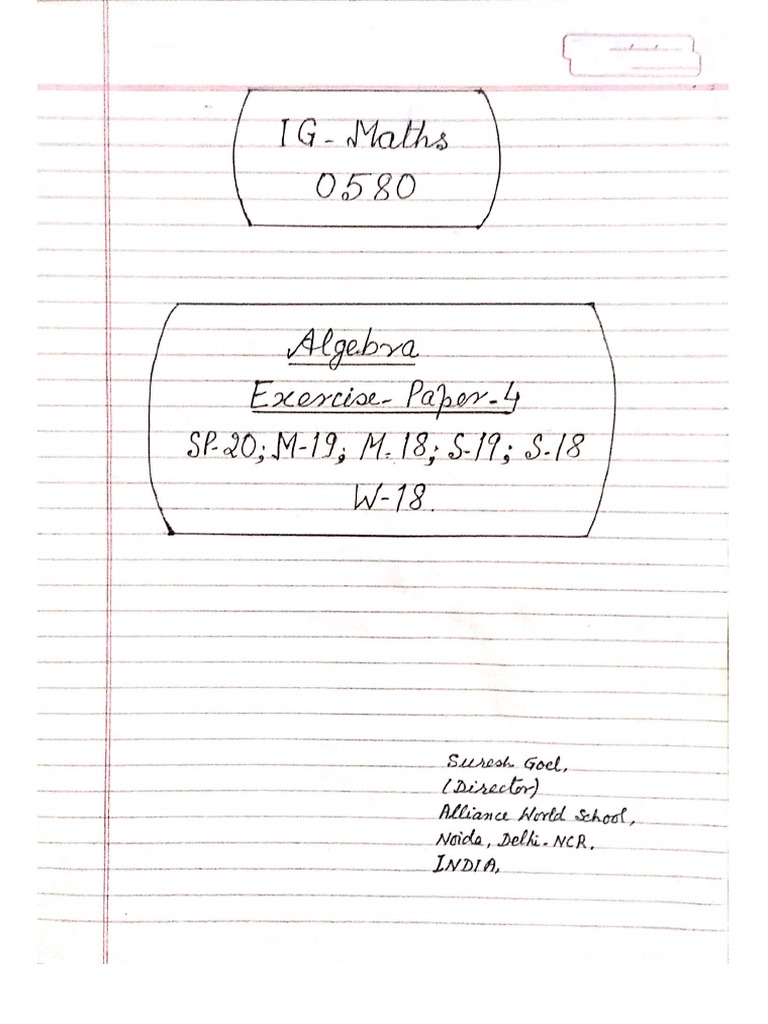 IG-Maths
0580
Algebra
Exercise-Paper-4
SP-20; M-19; M-18; S-19; S-18
W-18.
Suresh Goel,
(Director)
Alliance World School,
Noida, Delhi-NCR.
INDIA,